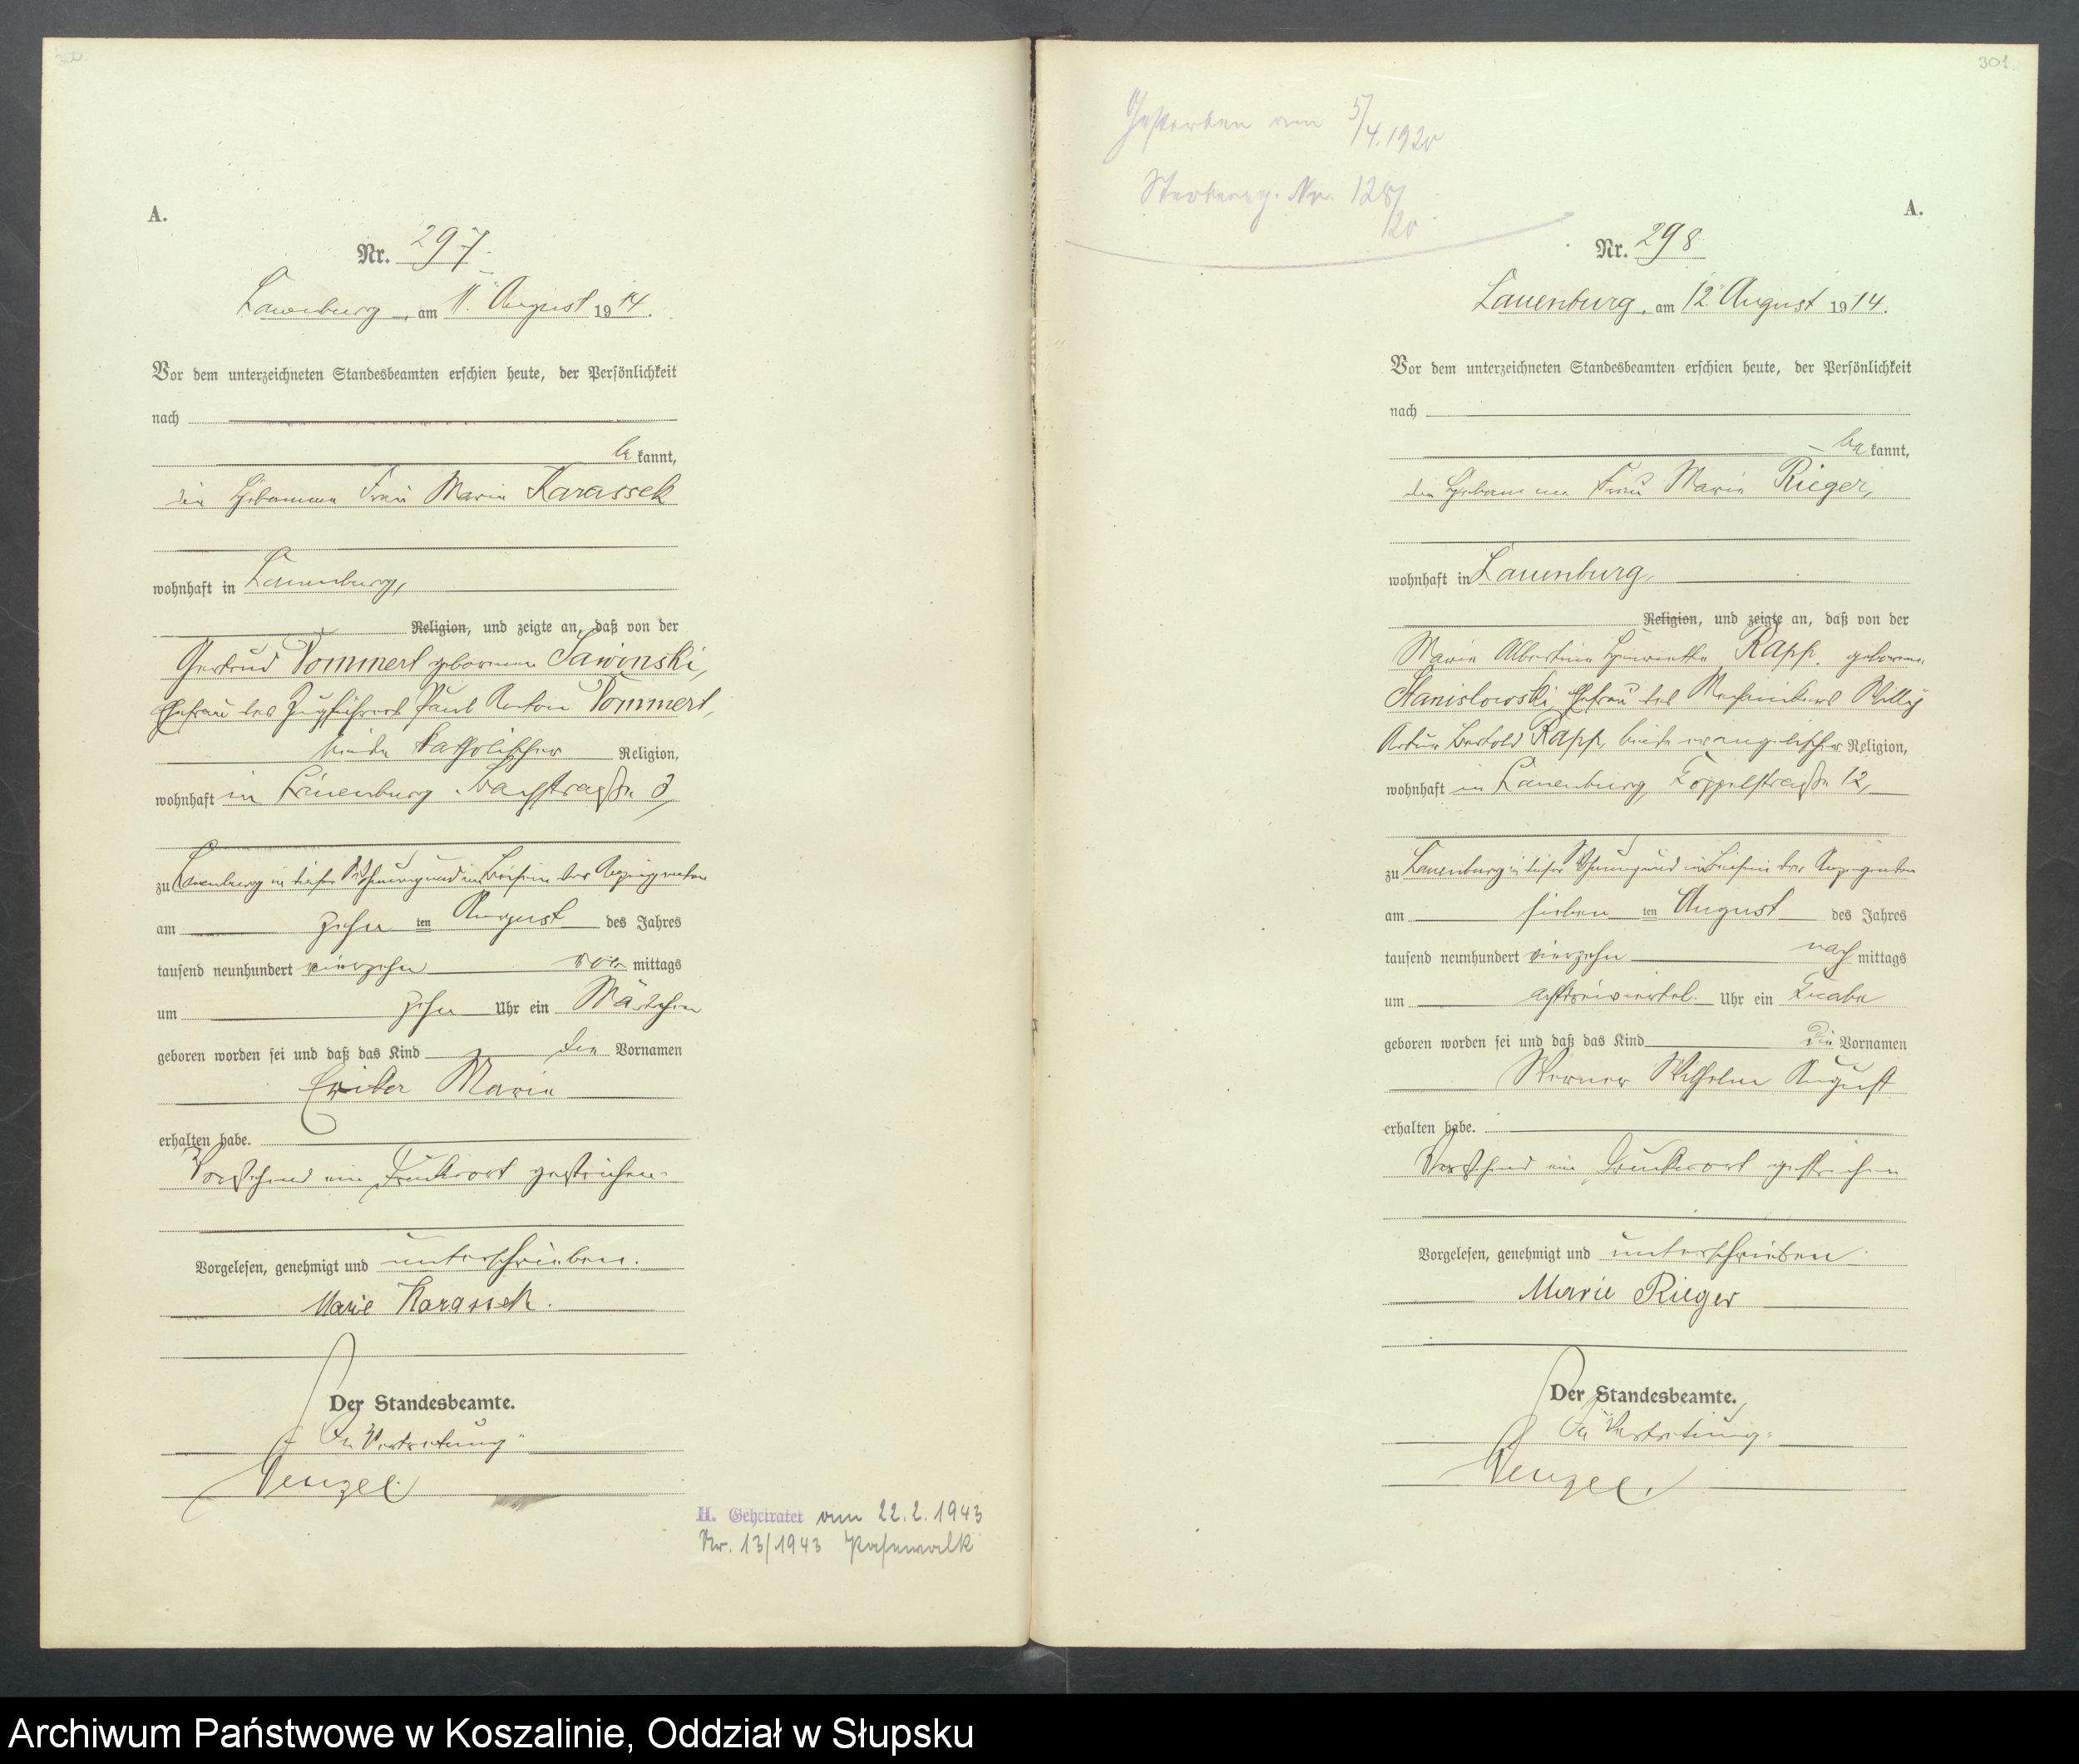 A.
Nr. 297.
Lauenburg, am 11. August 1914.
Vor dem unterzeichneten Standesbeamten erschien heute, der Persönlichkeit
nach
bekannt,
die Hebamme Frau Marie Karassek
wohnhaft in Lauenburg,
Religion, und zeigte an, daß von der
Gertrud Pommert geborenen Sawinski,
Ehefrau des Zugführers Paul Anton Pommert,
beide katholischer Religion,
wohnhaft in Lauenburg Bachstraße 3,
zu Lauenburg in dieser Wohnung und im Beisein der Anzeigenden
am zehnten August des Jahres
tausend neunhundert vierzehn vormittags
um zehn Uhr ein Mädchen
geboren worden sei und daß das Kind die Vornamen
Marie
erhalten habe.
Vorstehend ein Druckwort gestrichen.
Vorgelesen, genehmigt und unterschrieben.
Marie Karassek.
Der Standesbeamte.
In Vertretung
Wenzel
H. Geheiratet am 22.2.1943
Nr. 13/1943 Pasewalk
301
Gestorben am 5/4.1920
Nr. 128/20
A.
Nr. 298
Lauenburg, am 12. August 1914.
Vor dem unterzeichneten Standesbeamten erschien heute, der Persönlichkeit
nach
bekannt,
die Hebamme Frau Marie Rieger,
wohnhaft in Lauenburg,
Religion, und zeigte an, daß von der
Marie Albertine Henriette Rapp, geborene
Stanislowski, Ehefrau des Mechanikers Willy
Artur Bertold Rapp, beide evangelischer Religion,
wohnhaft in Lauenburg, Koppelstraße 12,
zu Lauenburg in dieser Wohnung und im Beisein der Anzeigenden
am siebenten August des Jahres
tausend neunhundert vierzehn nachmittags
um achtdreiviertel Uhr ein Knabe
geboren worden sei und daß das Kind die Vornamen
Werner Wilhelm August
erhalten habe.
Vorstehend ein Druckwort gestrichen
Vorgelesen, genehmigt und unterschrieben
Marie Rieger
Der Standesbeamte.
In Vertretung:
Wenzel.
Archiwum Państwowe w Koszalinie, Oddział w Słupsku